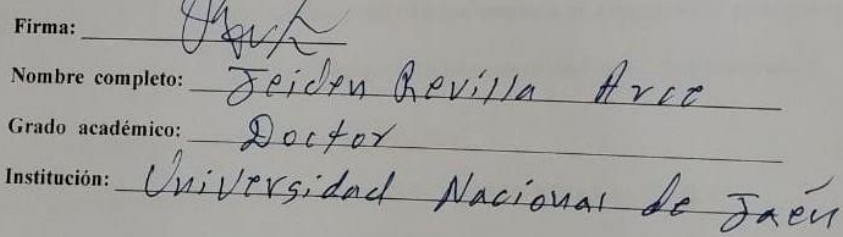 Firma:
Nombre completo: Jeiden Revilla Arce
Grado académico: Doctor
Institución: Universidad Nacional de Jaén